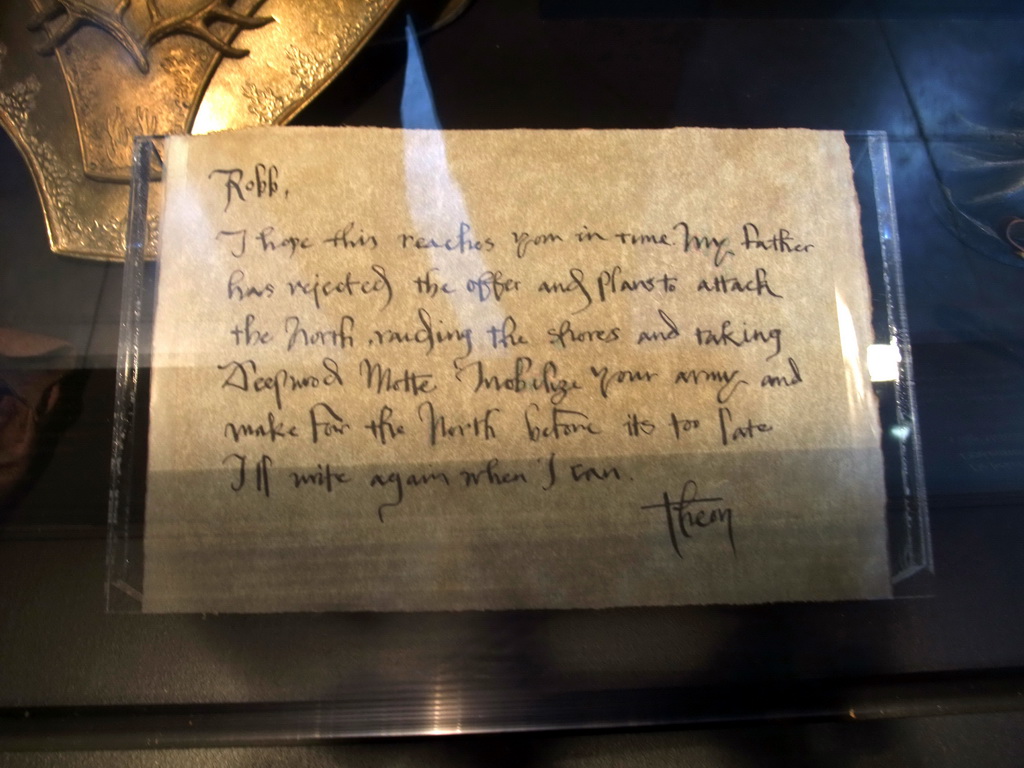 Robb,
I hope this reaches you in time. My father
has rejected the offer and plans to attack
the North, raiding the shores and taking
Deepwood Motte Mobilize your army and
make for the North before its too late
I'll write again when I can.
Theon